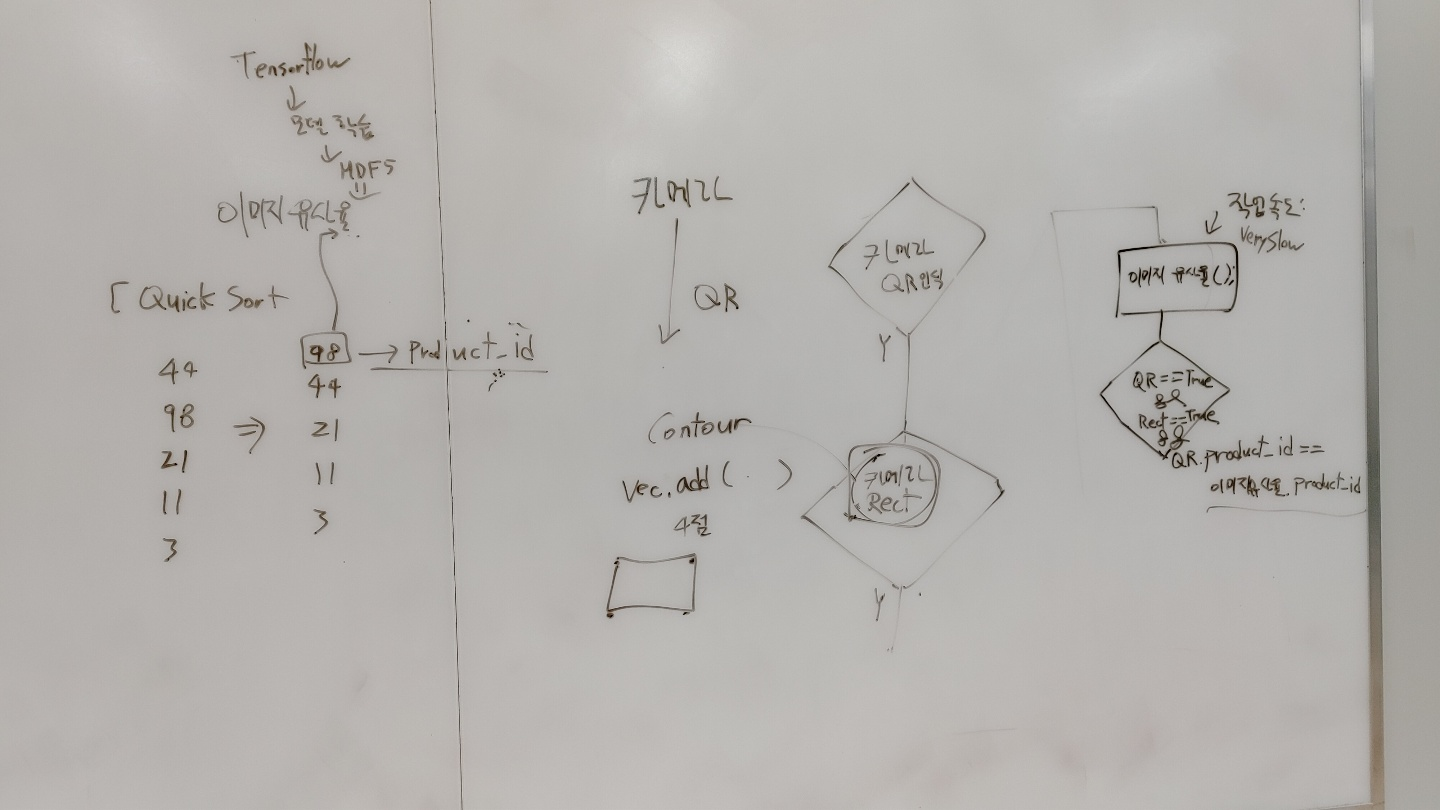 Tensorflow
모델 학습
HDF5
이미지 유사율
[ Quick Sort
44
98
21
11
3
98
44
21
11
3
Product_id
카메라
QR
Contour
Vec.add ( . )
4점
카메라
QR인식
Y
카메라
Rect
Y
작업속도:
Very Slow
이미지 유사율();
QR==True
&&
Rect==True
&&
QR.product_id ==
이미지유사율.product_id